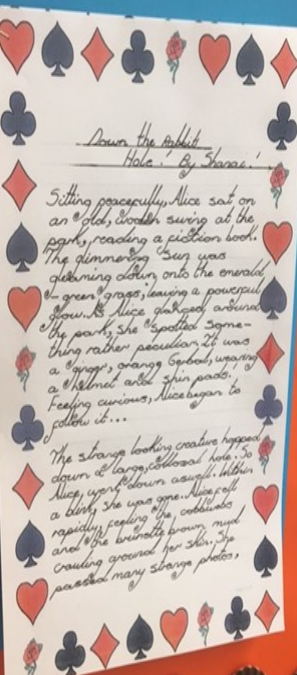 Down the Rabbit
Hole! By Shanai!
Sitting peacefully, Alice sat on
an old, wooden swing at the
park, reading a fiction book.
The glimmering sun was
gleaming down onto the emerald
-green grass, leaving a powerful
glow. As Alice glanced around
the park, she spotted some-
thing rather peculiar. It was
a ginger, orange Gerbal, wearing
a helmet and shin pads.
Feeling curious, Alice began to
follow it...
The strange looking creature hopped
down a large, hole. So
Alice, went down aswell. Within
a blink, she was gone. Alice fell
rapidly, feeling the cobwebs
and the brunette brown mud
crawling around her skin. She
passed many strange photos,